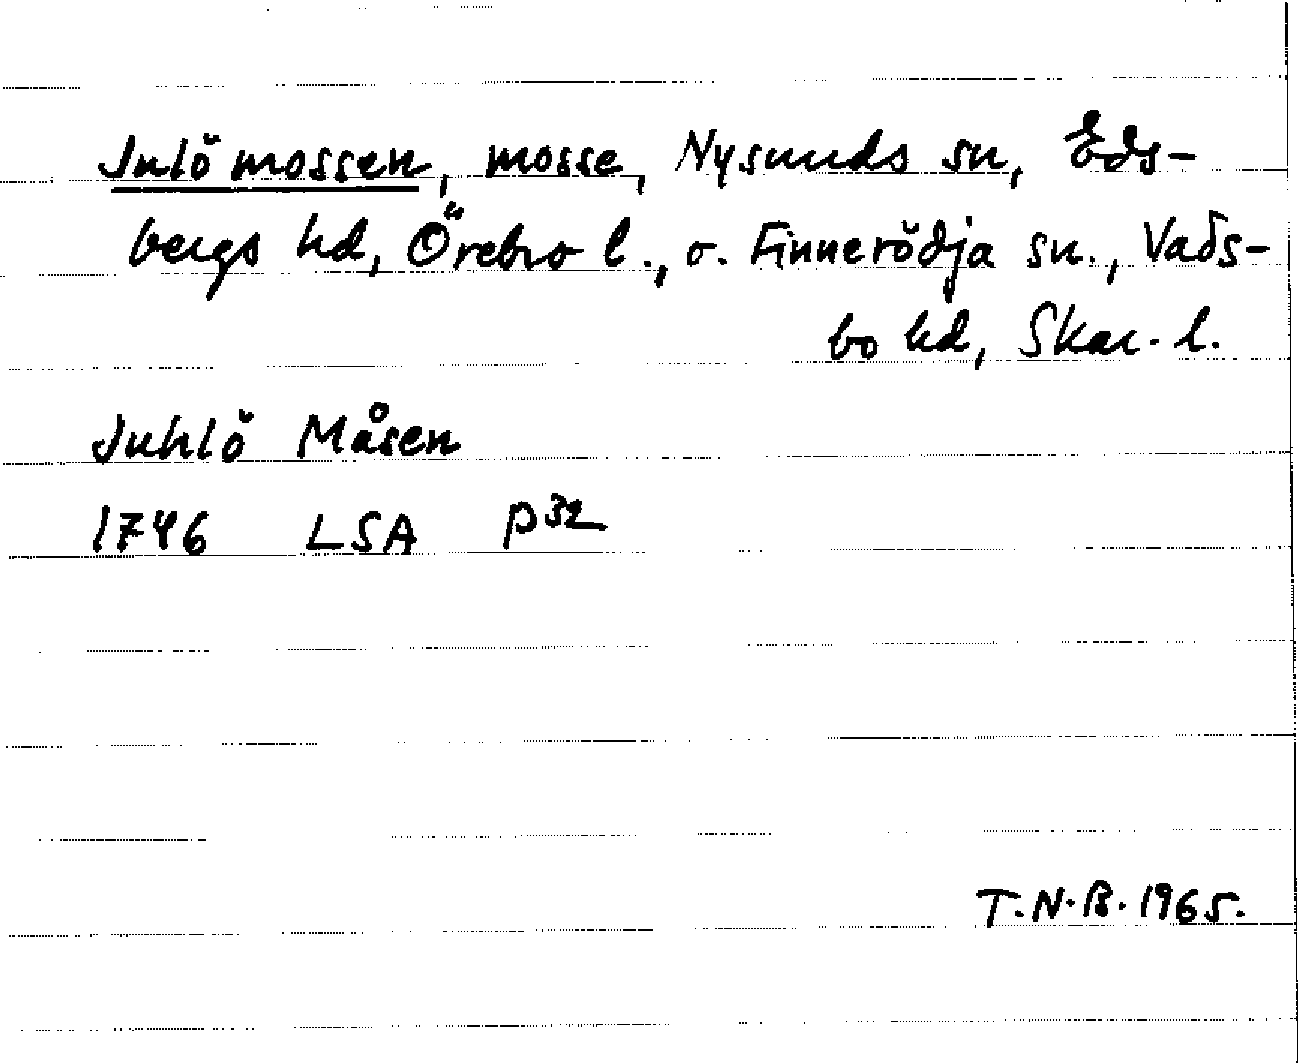 Julömossen, mosse, Nysunds sn, Eds-
bergs hd, Örebro l., o. Finnerödja sn., Vads-
bo hd, Skar. l.
Juhlö Måsen
1746 LSA P32
T.N.B. 1965.